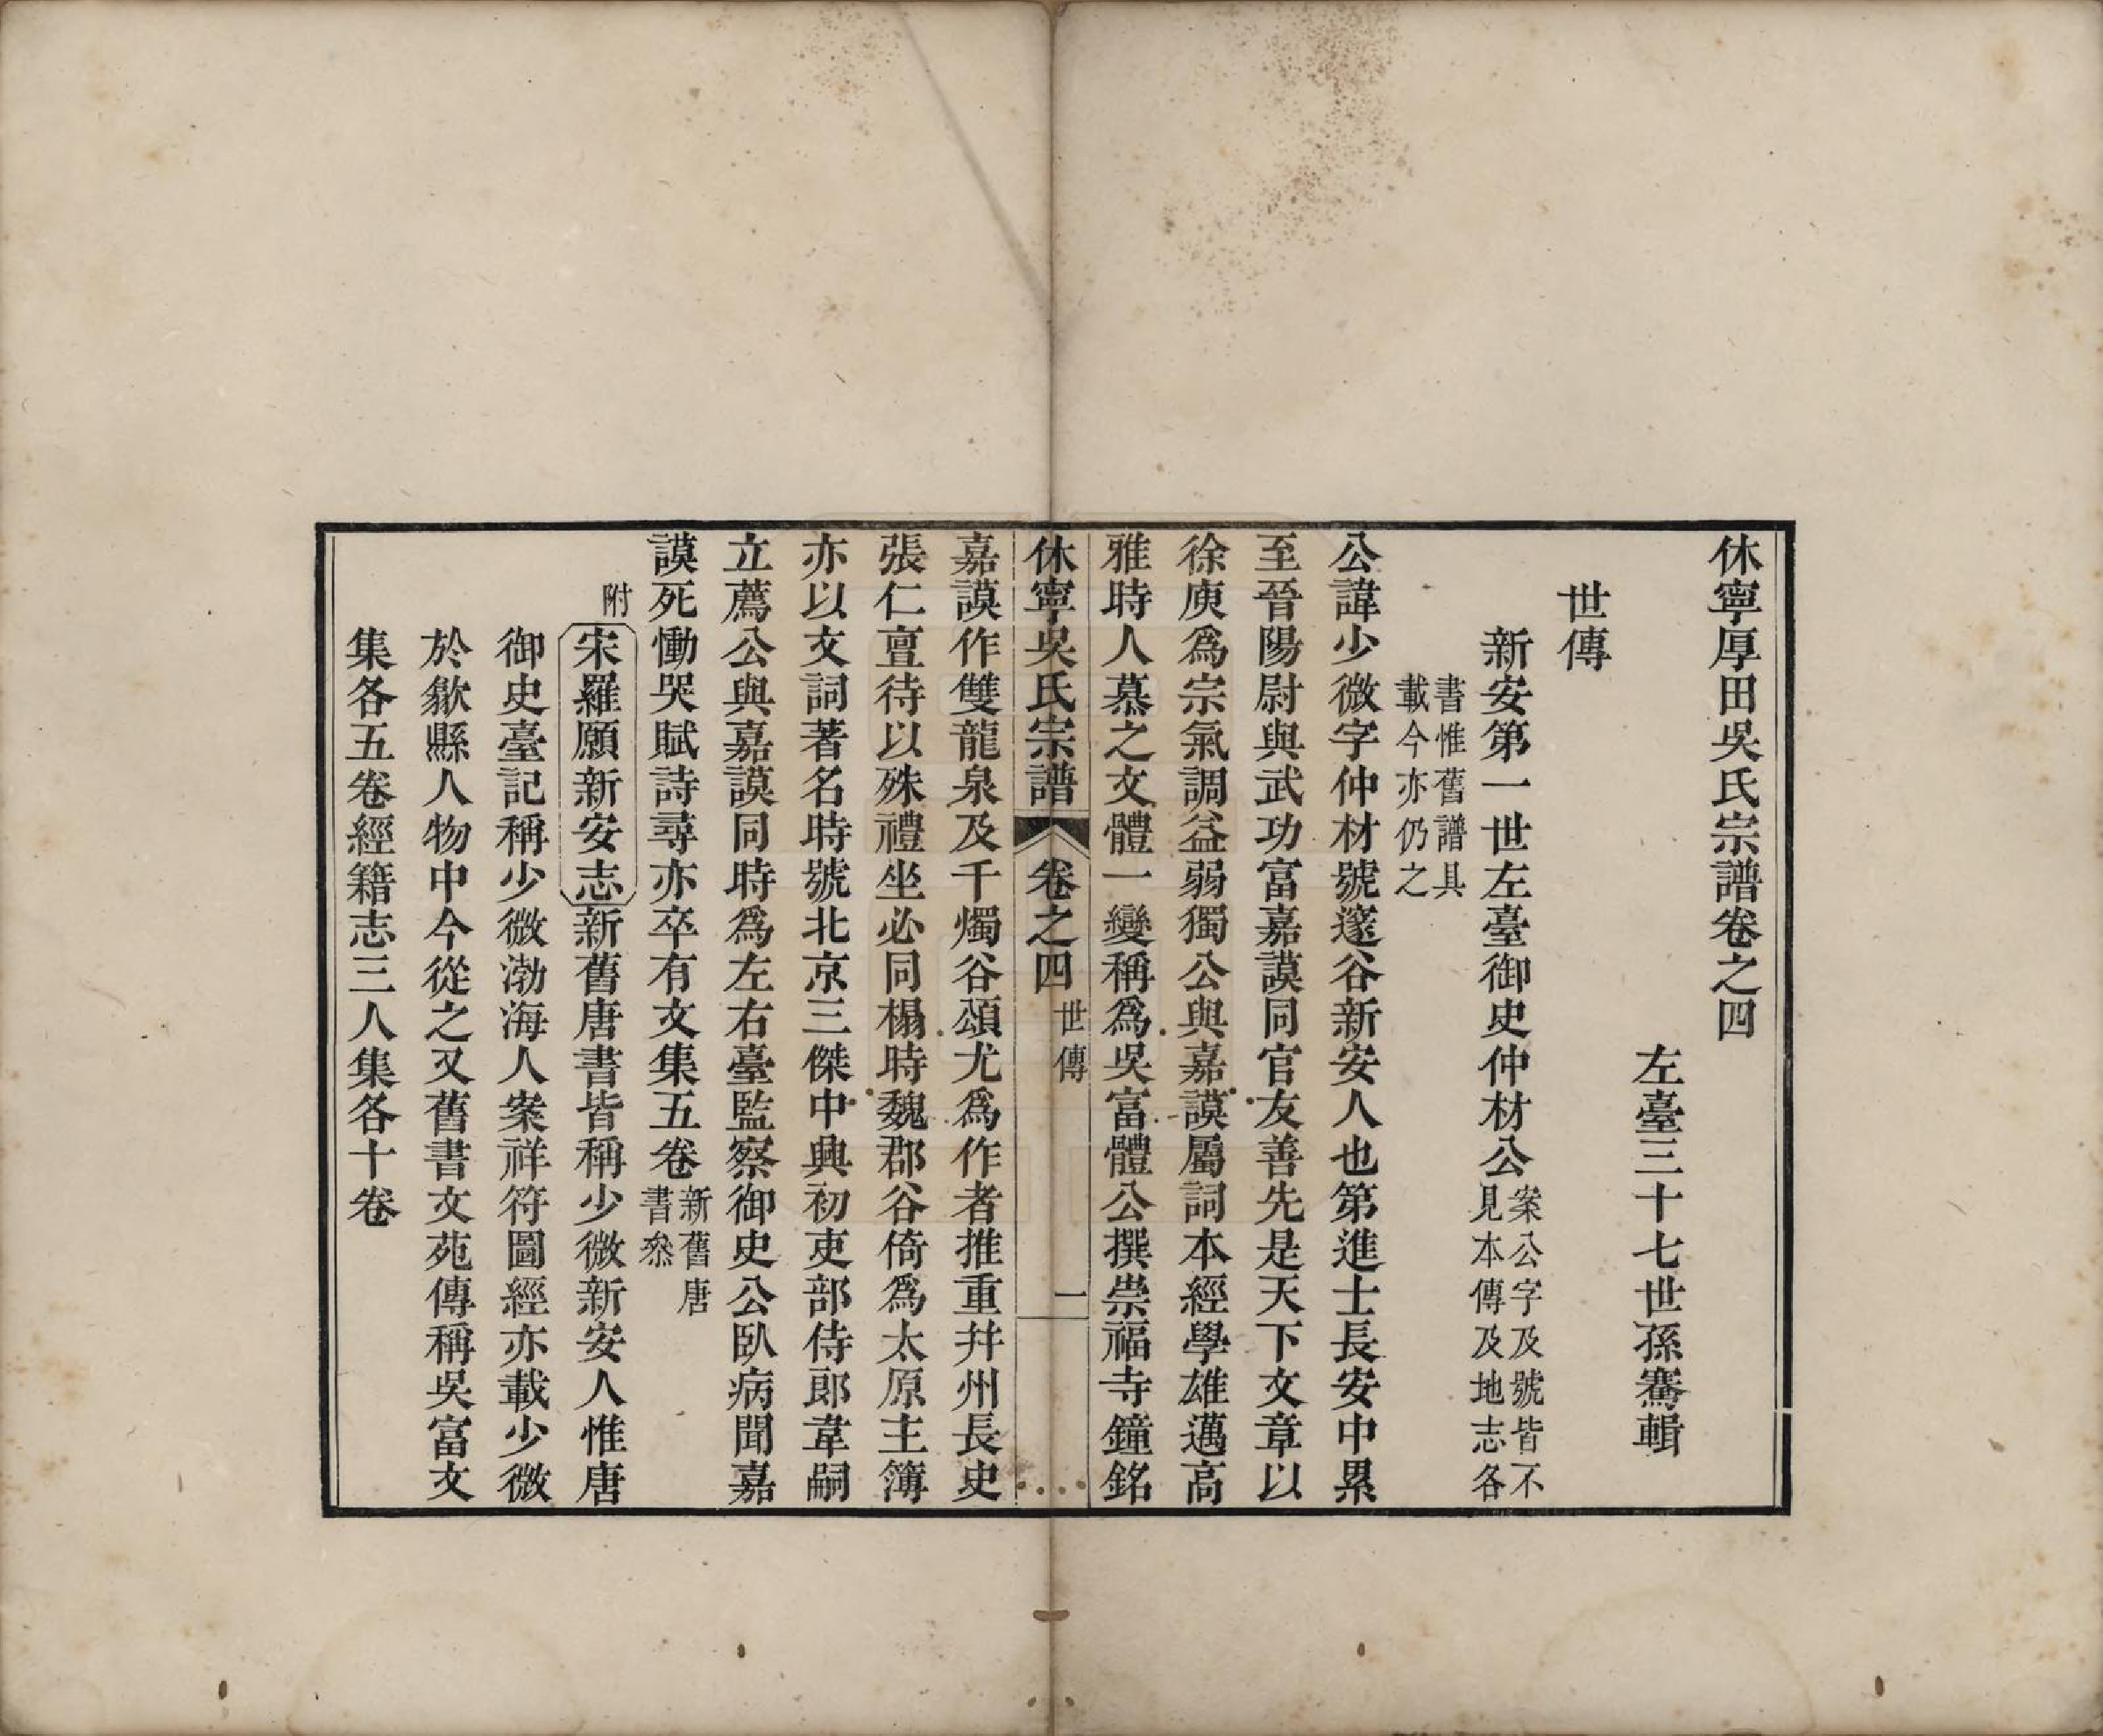 休寧厚田吳氏宗譜卷之四
左臺三十七世孫騫輯
世傳
新安第一世左臺御史仲材公
案公字及號皆不
見本傳及地志各
書惟舊譜具
載今亦仍之
公諱少微字仲材號邃谷新安人也第進士長安中累
至晉陽尉與武功富嘉謨同官友善先是天下文章以
徐庾爲宗氣調益弱獨公與嘉謨屬詞本經學雄邁高
雅時人慕之文體一變稱爲吳富體公撰崇福寺鐘銘
休寧吳氏宗譜 卷之四 世傳 一
嘉謨作雙龍泉及千燭谷頌尤爲作者推重幷州長史
張仁亶待以殊禮坐必同榻時魏郡谷倚爲太原主簿
亦以文詞著名時號北京三傑中興初吏部侍郎韋嗣
立薦公與嘉謨同時爲左右臺監察御史公臥病聞嘉
謨死慟哭賦詩尋亦卒有文集五卷
新舊唐
書叅
附
宋羅願新安志新舊唐書皆稱少微新安人惟唐
御史臺記稱少微渤海人案祥符圖經亦載少微
於歙縣人物中今從之又舊書文苑傳稱吳富文
集各五卷經籍志三人集各十卷